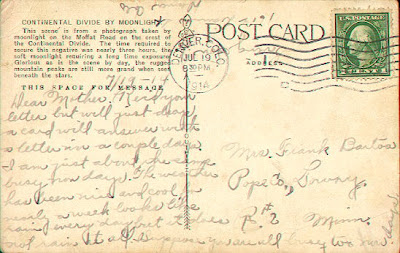 CONTINENTAL DIVIDE BY MOONLIGHT
This scene is from a photograph taken by
moonlight on the Moffat Road on the crest of
the Continental Divide. The time required to
secure this negative was nearly three hours, the
soft moonlight requiring a long time exposure.
Glorious as is the scene by day, the rugged
mountain peaks are still more grand when seen
beneath the stars.
THIS SPACE FOR MESSAGE
POST CARD
ADDRESS
DENVER, COLO.
JUL 19
8 30 PM
1914
7/19-14
Dear Mother. Rec'd your
letter but will just drop
a card will answer with
a letter in a couple days
I am just about
busy now days. The weather
has been nice and cool for
nearly a week looks like
rain every day yet it does
not rain it all. I suppose you are all busy too
Mrs. Frank Bartos
Pope Co,
R#2 Minn.